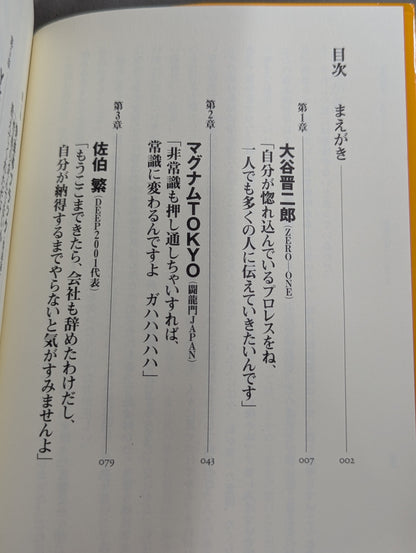 目次
まえがき 002
第1章
大谷晋二郎(ZERO−ONE)
「自分が惚れ込んでいるプロレスをね、
一人でも多くの人に伝えていきたいんです」 007
第2章
マグナムTOKYO(闘龍門JAPAN)
「非常識も押し通しちゃいすれば、
常識に変わるんですよ ガハハハハハ」 043
第3章
佐伯 繁(DEEP2001代表)
「もうここまできたら、会社も辞めたわけだし、
自分が納得するまでやらないと気がすみませんよ」 079